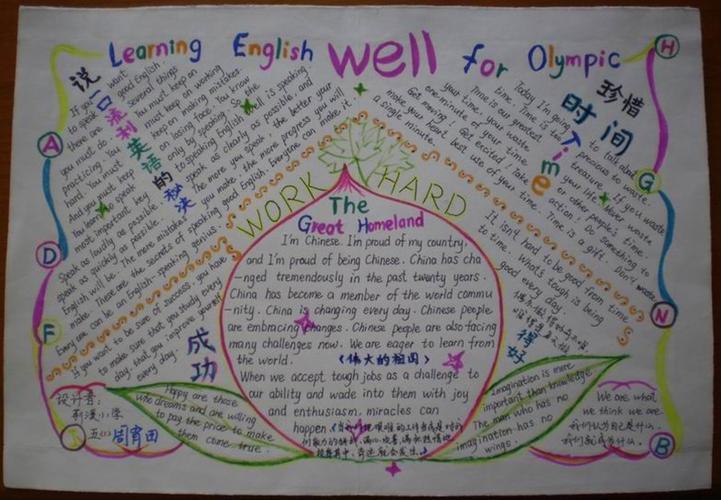 Learning English well for Olympic
说一口流利英语的秘决
If you want
to speak good English.
there are several things
you must do. You must keep on
practicing. You must keep on working
hard. You must keep on making mistakes
And you must keep on losing face. You know
You learn to speak only by speaking. So the
most important key to speaking English well is speaking.
Speak as loudly as possible, as clearly as possible, and
speak as quickly as possible. The more you speak, the better your
English will be. The more mistakes you make, the more progress you will
make. These are the secrets of speaking good English. Everyone can make it.
Every one can be an English speaking genius.
If you want to be sure of success, you have
to make sure that you study every
day, that you improve yourself
every day.
成功
珍惜时间
Time
Today I'm going to talk about
time. Time is precious
Time is our greatest treasure. If you waste
your time, you waste your life. Don't waste
one minute of your time or other people's time.
Get moving. Get excited. Take action. Do something to
make your best use of your time. Time is a gift. Don't waste
a single minute.
It isn't hard to be good from time
to time. What's tough is being
good every day.
得好
WORK HARD
The
Great Homeland
I'm Chinese. I'm proud of my country,
and I'm proud of being Chinese. China has cha
-nged tremendously in the past twenty years.
China has become a member of the world commu
-nity. China is changing every day. Chinese people
are embracing changes. Chinese people are also facing
many challenges now. We are eager to learn from
the world. 《伟大的祖国》
When we accept tough jobs as a challenge to
our ability and wade into them with joy
and enthusiasm, miracles can
happen.
Happy are those
who dreams and are willing
to pay the price to make
them come true.
Imagination is more
important than knowledge
The man who has no
imagination has no
wings.
We are what
we think we are
我们认为自己是什么.
我们就成为什么.
设计者:
小学
五(二) 周宵田
A
D
F
H
G
N
B